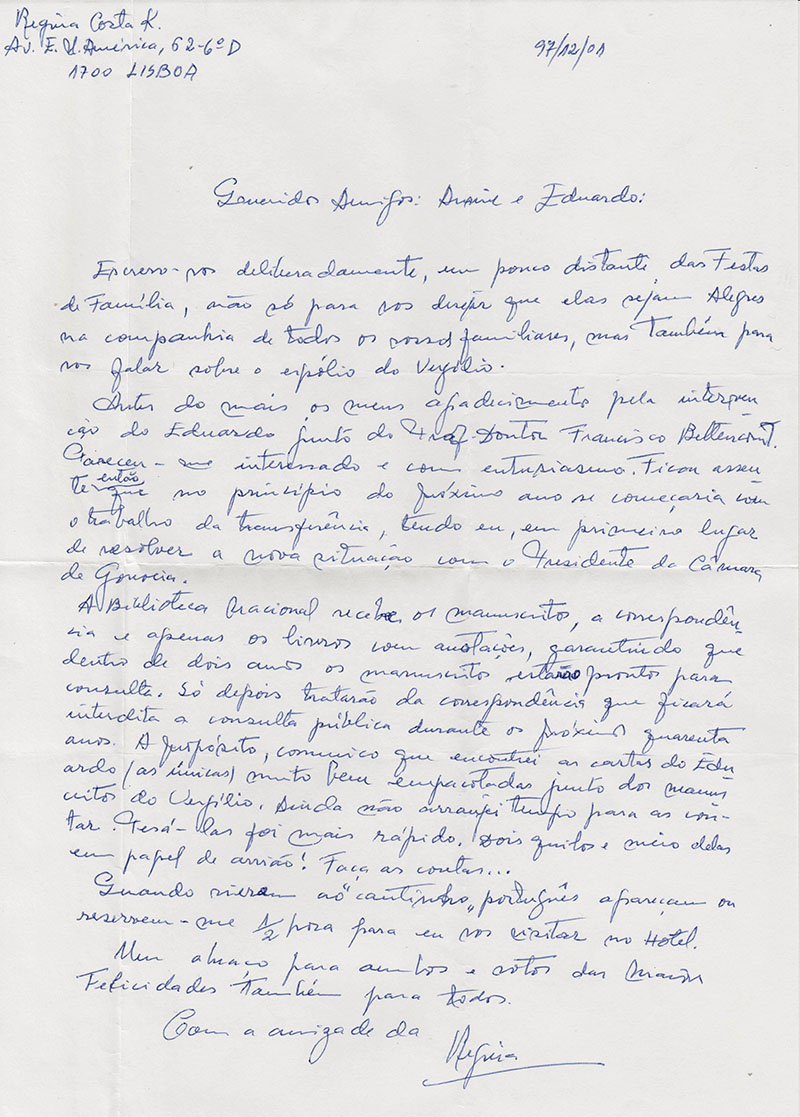 Regina Costa K.
Av. E. U. América, 62-6º D
1700 LISBOA
97/12/01
Queridos Amigos: Annie e Eduardo:
Escrevo-vos deliberadamente, um pouco distante das Festas
de Família, não só para vos desejar que elas sejam Alegres
na companhia de todos os vossos familiares, mas também para
vos falar sobre o espólio do Vergílio.
Antes do mais, os meus agradecimentos pela interven
ção do Eduardo junto do Prof. Doutor Francisco Bettencourt.
Pareceu-me interessado e com entusiasmo. Ficou assen
te então que no princípio do próximo ano se começaria com
o trabalho da transferência, tendo eu, em primeiro lugar
de resolver a nova situação com o Presidente da Câmara
de Gouveia.
A Biblioteca Nacional recebe os manuscritos, a correspondên-
cia e apenas os livros com anotações, garantindo que
dentro de dois anos os manuscritos estarão prontos para
consulta. Só depois tratarão da correspondência que ficará
interdita a consulta pública durante os próximos quarenta
anos. A propósito, comunico que encontrei as cartas do Edu-
ardo (as únicas) muito bem empacotadas junto dos manus
critos do Vergílio. Ainda não arranjei tempo para as con-
tar. Pesá-las foi mais rápido. Dois quilos e meio delas
em papel de avião! Faça as contas...
Quando vierem ao "cantinho" português apareçam ou
reservem-me 1/2 hora para eu vos visitar no Hotel.
Um abraço para ambos e votos das maiores
Felicidades também para todos.
Com a amizade da
Regina